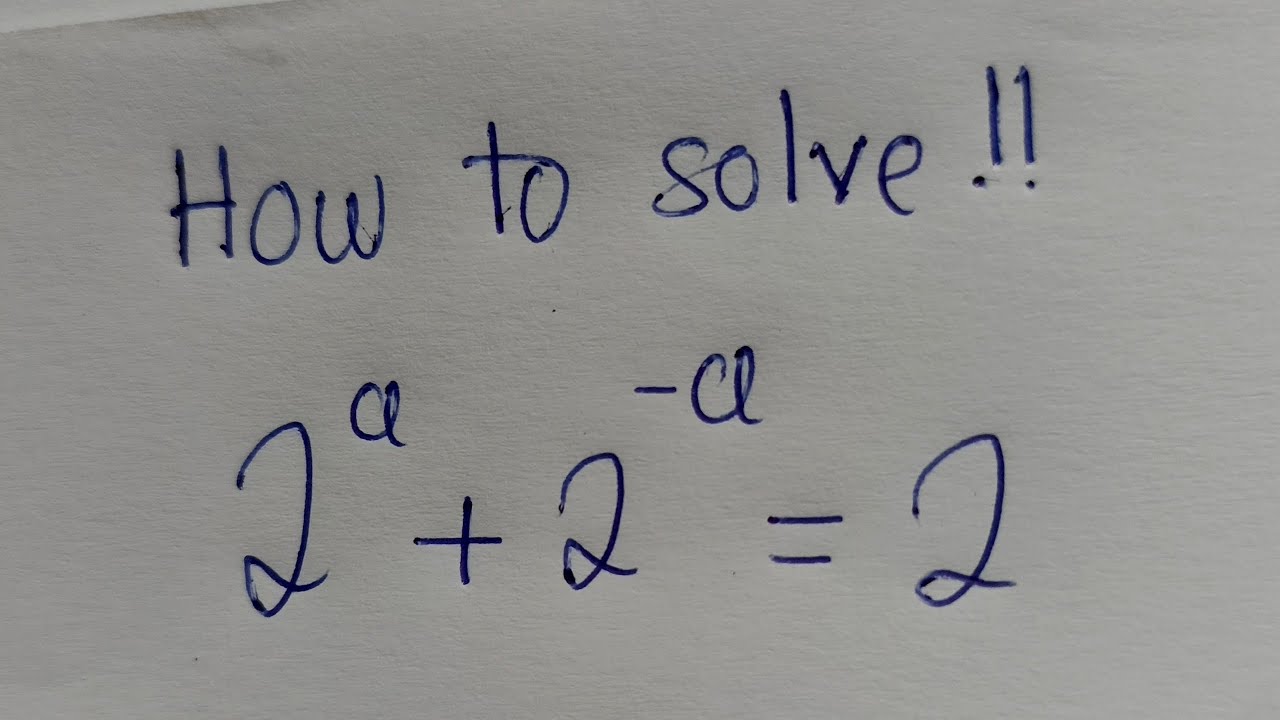 How to solve!!
2^a + 2^-a = 2